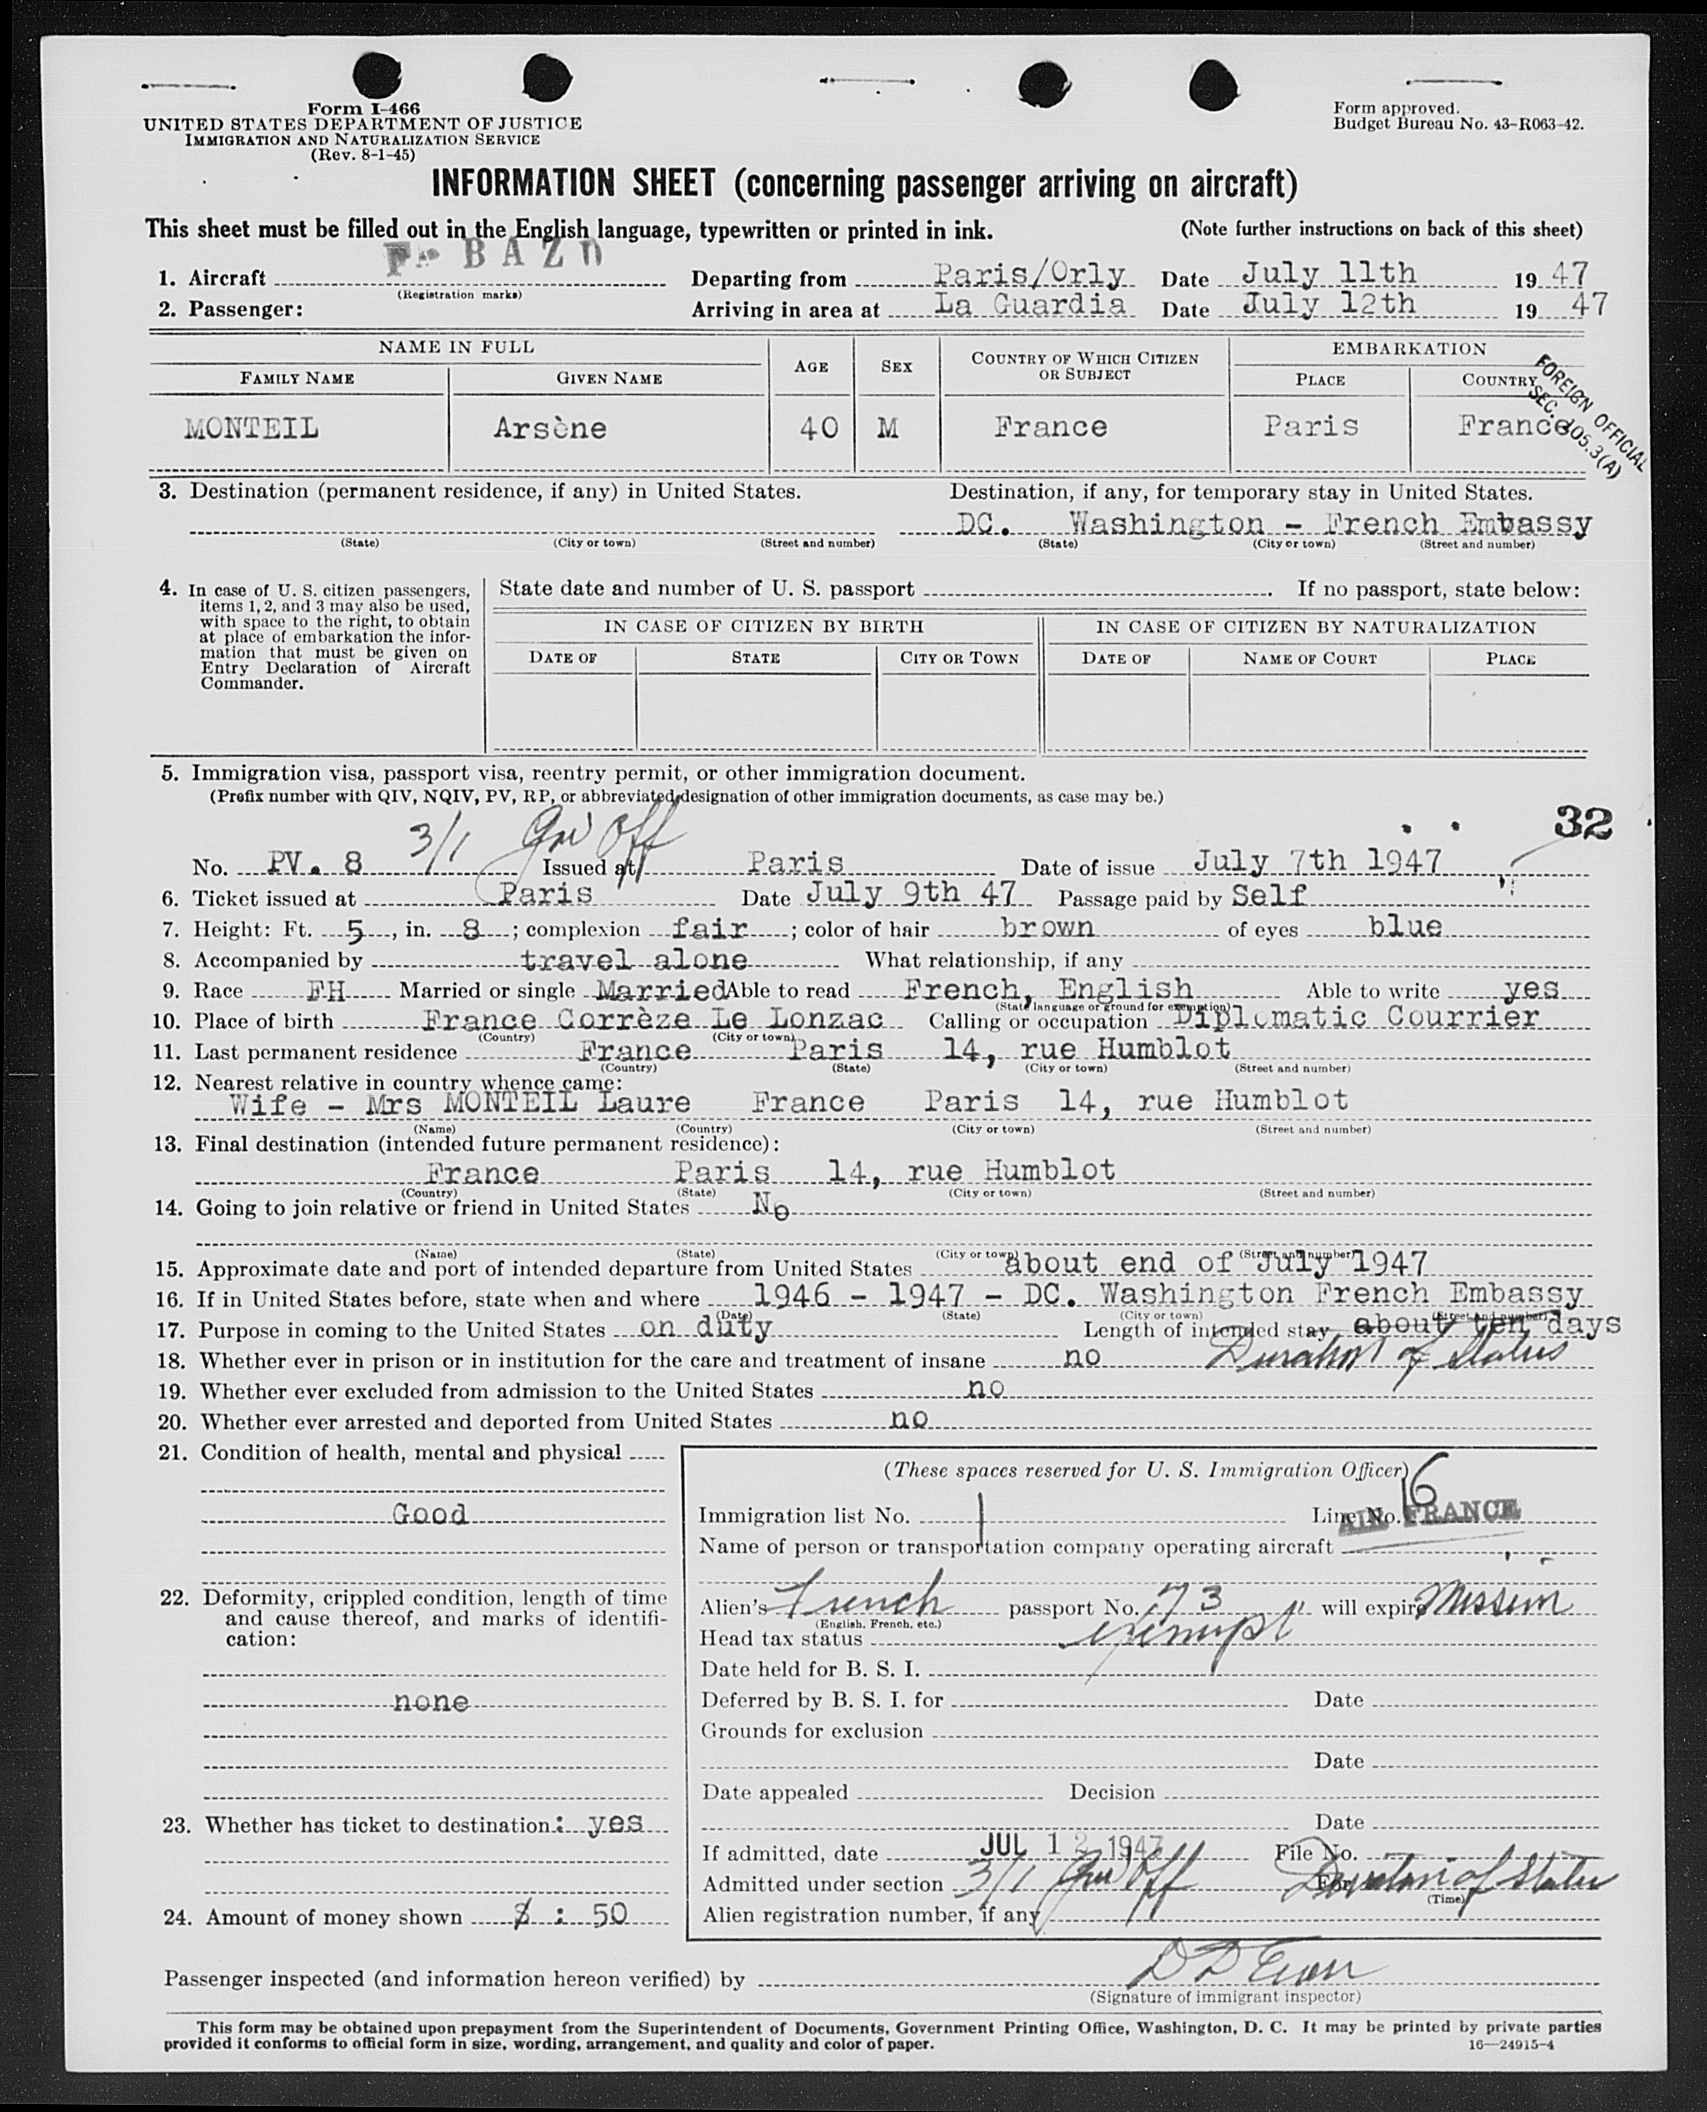 Form I-466
UNITED STATES DEPARTMENT OF JUSTICE
IMMIGRATION AND NATURALIZATION SERVICE
(Rev. 8-1-45)
Form approved.
Budget Bureau No. 43-R063-42.
INFORMATION SHEET (concerning passenger arriving on aircraft)
This sheet must be filled out in the English language, typewritten or printed in ink. (Note further instructions on back of this sheet)
1. Aircraft F-BAZD Departing from Paris/Orly Date July 11th 1947
(Registration marks)
2. Passenger: Arriving in area at La Guardia Date July 12th 1947
NAME IN FULL AGE SEX COUNTRY OF WHICH CITIZEN OR SUBJECT EMBARKATION
FAMILY NAME GIVEN NAME PLACE COUNTRY
FOREIGN OFFICIAL
SEC. 105.3(A)
MONTEIL Arsène 40 M France Paris France
3. Destination (permanent residence, if any) in United States. Destination, if any, for temporary stay in United States.
DC. Washington - French Embassy
(State) (City or town) (Street and number) (State) (City or town) (Street and number)
4. In case of U. S. citizen passengers, items 1, 2, and 3 may also be used, with space to the right, to obtain at place of embarkation the information that must be given on Entry Declaration of Aircraft Commander.
State date and number of U. S. passport . If no passport, state below:
IN CASE OF CITIZEN BY BIRTH IN CASE OF CITIZEN BY NATURALIZATION
DATE OF STATE CITY OR TOWN DATE OF NAME OF COURT PLACE
5. Immigration visa, passport visa, reentry permit, or other immigration document.
(Prefix number with QIV, NQIV, PV, RP, or abbreviated designation of other immigration documents, as case may be.)
32
3/1 Gov Off
No. PV. 8 Issued at Paris Date of issue July 7th 1947
6. Ticket issued at Paris Date July 9th 47 Passage paid by Self
7. Height: Ft. 5, in. 8; complexion fair; color of hair brown of eyes blue
8. Accompanied by travel alone What relationship, if any
9. Race FH Married or single Married Able to read French, English Able to write yes
(State language or ground for exemption)
10. Place of birth France Corrèze Le Lonzac Calling or occupation Diplomatic Courrier
(Country) (City or town)
11. Last permanent residence France Paris 14, rue Humblot
(Country) (State) (City or town) (Street and number)
12. Nearest relative in country whence came:
Wife - Mrs MONTEIL Laure France Paris 14, rue Humblot
(Name) (Country) (City or town) (Street and number)
13. Final destination (intended future permanent residence):
France Paris 14, rue Humblot
(Country) (State) (City or town) (Street and number)
14. Going to join relative or friend in United States No
(Name) (State) (City or town) (Street and number)
15. Approximate date and port of intended departure from United States about end of July 1947
16. If in United States before, state when and where 1946 - 1947 - DC. Washington French Embassy
(Date) (State) (City or town) (Street and number)
17. Purpose in coming to the United States on duty Length of intended stay about ten days
18. Whether ever in prison or in institution for the care and treatment of insane no Duration of Status
19. Whether ever excluded from admission to the United States no
20. Whether ever arrested and deported from United States no
21. Condition of health, mental and physical
Good
22. Deformity, crippled condition, length of time and cause thereof, and marks of identification:
none
23. Whether has ticket to destination: yes
24. Amount of money shown $ : 50
(These spaces reserved for U. S. Immigration Officer)
Immigration list No. 1 Line No. 16
AIR FRANCE
Name of person or transportation company operating aircraft
Alien's French passport No. 73 will expire Mission
(English, French, etc.)
Head tax status exempt
Date held for B. S. I.
Deferred by B. S. I. for Date
Grounds for exclusion
Date
Date appealed Decision
Date
If admitted, date JUL 12 1947 File No.
Admitted under section 3/1 Gov Off For Duration of Status
(Time)
Alien registration number, if any
Passenger inspected (and information hereon verified) by
(Signature of immigrant inspector)
This form may be obtained upon prepayment from the Superintendent of Documents, Government Printing Office, Washington, D. C. It may be printed by private parties
provided it conforms to official form in size, wording, arrangement, and quality and color of paper. 16—24915-4